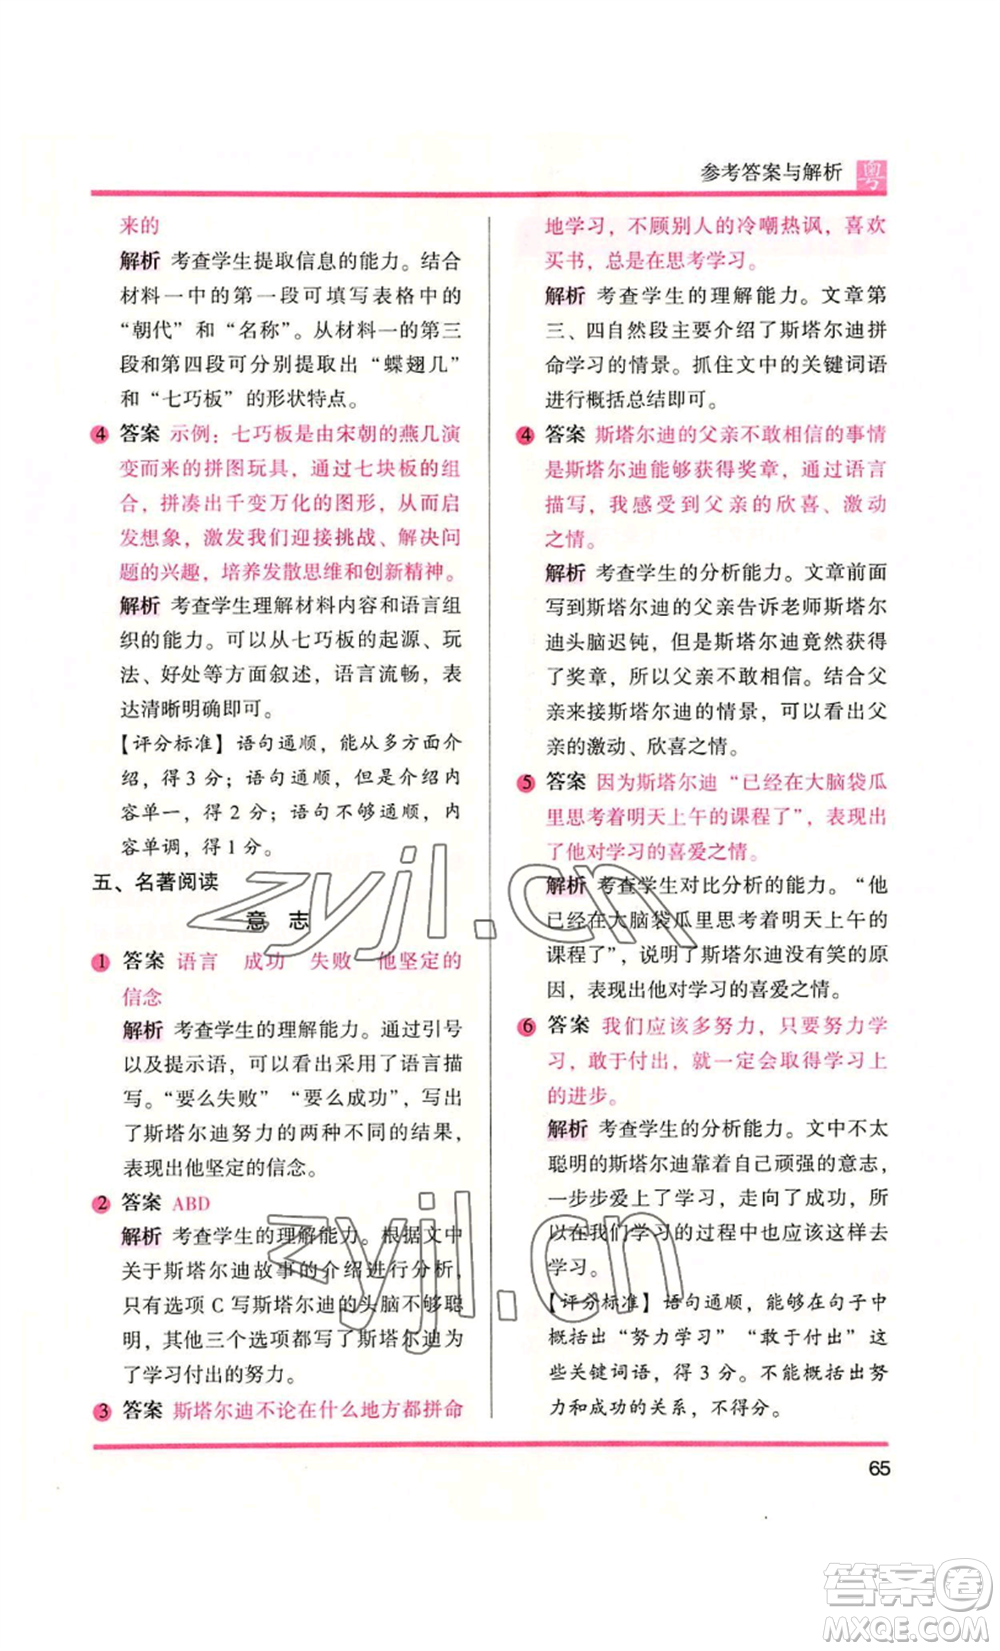 参考答案与解析 粤
来的
解析 考查学生提取信息的能力。结合
材料一中的第一段可填写表格中的
“朝代”和“名称”。从材料一的第三
段和第四段可分别提取出“蝶翅几”
和“七巧板”的形状特点。
4 答案 示例：七巧板是由宋朝的燕几演
变而来的拼图玩具，通过七块板的组
合，拼凑出千变万化的图形，从而启
发想象，激发我们迎接挑战、解决问
题的兴趣，培养发散思维和创新精神。
解析 考查学生理解材料内容和语言组
织的能力。可以从七巧板的起源、玩
法、好处等方面叙述，语言流畅，表
达清晰明确即可。
【评分标准】语句通顺，能从多方面介
绍，得 3 分；语句通顺，但是介绍内
容单一，得 2 分；语句不够通顺，内
容单调，得 1 分。
五、名著阅读
意 志
1 答案 语言 成功 失败 他坚定的
信念
解析 考查学生的理解能力。通过引号
以及提示语，可以看出采用了语言描
写。“要么失败”“要么成功”，写出
了斯塔尔迪努力的两种不同的结果，
表现出他坚定的信念。
2 答案 ABD
解析 考查学生的理解能力。根据文中
关于斯塔尔迪故事的介绍进行分析，
只有选项 C 写斯塔尔迪的头脑不够聪
明，其他三个选项都写了斯塔尔迪为
了学习付出的努力。
3 答案 斯塔尔迪不论在什么地方都拼命
地学习，不顾别人的冷嘲热讽，喜欢
买书，总是在思考学习。
解析 考查学生的理解能力。文章第
三、四自然段主要介绍了斯塔尔迪拼
命学习的情景。抓住文中的关键词语
进行概括总结即可。
4 答案 斯塔尔迪的父亲不敢相信的事情
是斯塔尔迪能够获得奖章，通过语言
描写，我感受到父亲的欣喜、激动
之情。
解析 考查学生的分析能力。文章前面
写到斯塔尔迪的父亲告诉老师斯塔尔
迪头脑迟钝，但是斯塔尔迪竟然获得
了奖章，所以父亲不敢相信。结合父
亲来接斯塔尔迪的情景，可以看出父
亲的激动、欣喜之情。
5 答案 因为斯塔尔迪“已经在大脑袋瓜
里思考着明天上午的课程了”，表现出
了他对学习的喜爱之情。
解析 考查学生对比分析的能力。“他
已经在大脑袋瓜里思考着明天上午的
课程了”，与斯塔尔迪没有笑的原
因，表现出他对学习的喜爱之情。
6 答案 我们应该多努力，只要努力学
习，敢于付出，就一定会取得学习上
的进步。
解析 考查学生的分析能力。文中不太
聪明的斯塔尔迪靠着自己顽强的意志，
一步步爱上了学习，走向了成功，所
以在我们学习的过程中也应该这样去
学习。
【评分标准】语句通顺，能够在句子中
概括出“努力学习”“敢于付出”这
些关键词语，得 3 分。不能概括出努力
和成功的关系，不得分。
65
zyjl.cn
zyjl.cn
答案卷
MXQE.COM